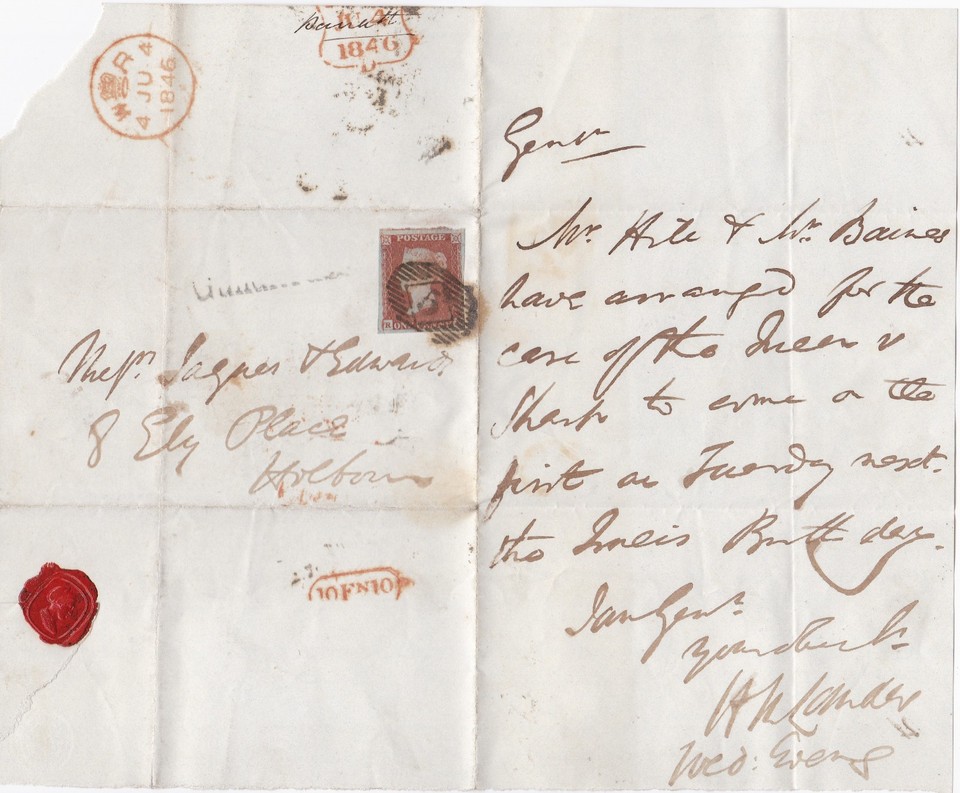 1846
4 JU 4
1846
POSTAGE
Messrs. Jaques & Edwards
8 Ely Place
Holborn
10 FN 10
Gentn
Mr. Hile & Mr. Baines
have arranged for the
case of the Queen v
Sharp to come on the
first on Tuesday next.
the Queens Birth day.
I am Gents.
Your
Lander
Wed: Eveng